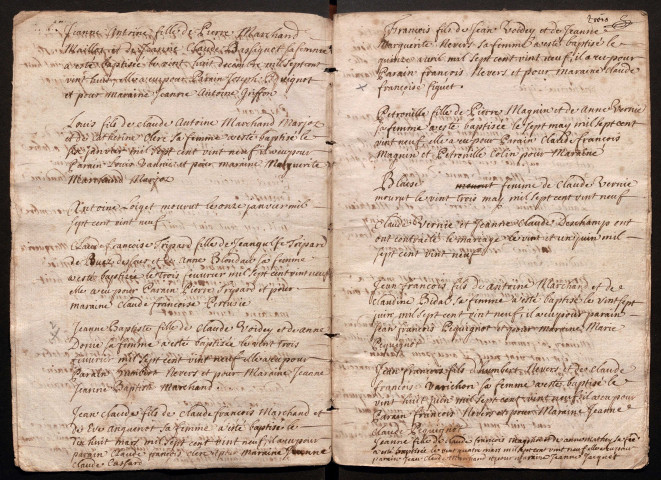 Jeanne Antoine fille de Pierre Marchand
Maillot et de Jeanne Claude Bassignot sa femme
a esté baptisée le vent huit decembre mil sept cent
vint huit elle a eu pour Parain Joseph Bassignot
et pour maraine Jeanne Antoine Griffon
Louis fils de Claude Antoine Marchand Marjoz
et de Catherine Clere sa femme a esté baptisé le
six janvier mil sept cent vint neuf il a eu pour
Parain Louis et pour maraine Marguerite
Marchand Marjoz
Antoine Loiget mourut le onze janvier mil
sept cent vint neuf
Claude Françoise Tripard fille de Jeanque Tripard
de et de Anne Blondaut sa femme
a esté baptisée le trois feuvrier mil sept cent vint neuf
elle a eu pour Parain Pierre Tripard et pour
maraine Claude francoise Pertusie
Jeanne Baptiste fille de Claude Voidey et de Anne
sa femme a esté baptisée le vint trois
feuvrier mil sept cent vint neuf elle a eu pour
Parain humbert Nevers et pour Maraine Jeanne
Jeanne Baptiste Marchand
Jean claude fils de claude francois Marchand et
de Eve anquenot sa femme a esté baptisé le
dix huit mars mil sept cent vint neuf il a eu pour
parain claude francois clere et pour maraine Jeanne
claude Cassard
Trois
Francois fils de Jean Voidey et de Jeanne
Marguerite Nevers sa femme a esté baptisé le
quinze avril mil sept cent vint neuf il a eu pour
Parain françois Nevers et pour maraine claude
françoise figuet
Petronille fille de Pierre Magnin et de Anne Vernie
sa femme a esté baptisée le sept may mil sept cent
vint neuf elle a eu pour Parain Claude François
Magnin et Petronille Colin pour Maraine
Blaise mourut femme de Claude Vernie
mourut le vint trois may mil sept cent vint neuf
Claude Vernie et Jeanne Claude Deschamps ont
ont contracté le mariage le vint et un juin mil
sept cent vint neuf
Jean francois fils de Antoine Marchand et de
claudine Bidal sa femme a esté baptisé le vint sept
juin mil sept cent vint neuf il a eu pour parain
Jean francois Pequignot et pour maraine Marie
Pequignot
Jean francois fils d humbert Nevers et de Claude
francoise Varichon sa femme a esté baptisé le
vint huit juin mil sept cent vint neuf il a eu pour
Parain francois Nevers et pour Maraine Jeanne
Claude Pequignot
Jeanne fille de claude francois et de anne Mathey sa fe
a esté baptisée le vint quatre mars mil sept cent vint neuf elle a eu pour
parain Jean claude Marchand et pour maraine Jeanne Jacquet